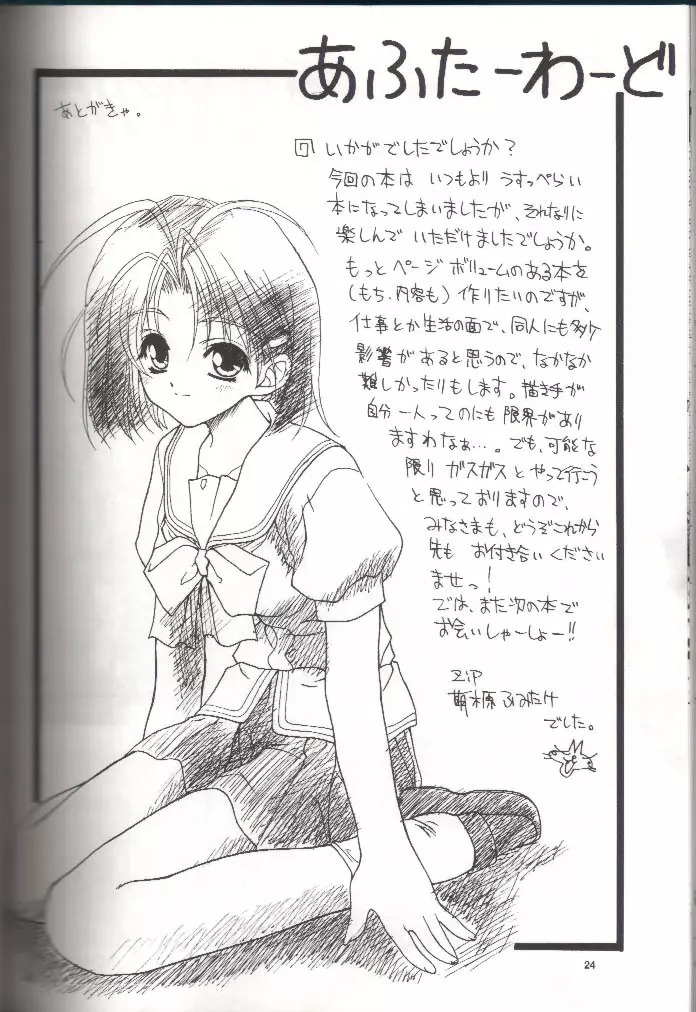 あふたーわーど
あとがきゃ。
いかがでしたでしょうか?
今回の本は いつもより うすっぺらい
本になってしまいましたが、それなりに
楽しんで いただけましたでしょうか。
もっと ページ ボリュームのある本を
(もち、内容も) 作りたいのですが、
仕事とか生活の面で、同人にも多々
影響があると思うので、なかなか
難しかったりもします。描き手が
自分一人ってのにも 限界があり
ますわなぁ…。でも、可能な
限り ガスガスと やって行こう
と思っておりますので、
みなさまも、どうぞこれから
先も お付き合い ください
ませっ!
では、また次の本で
お会いしゃーしょー!!
ZiP
萌木原ふみたけ
でした。
24